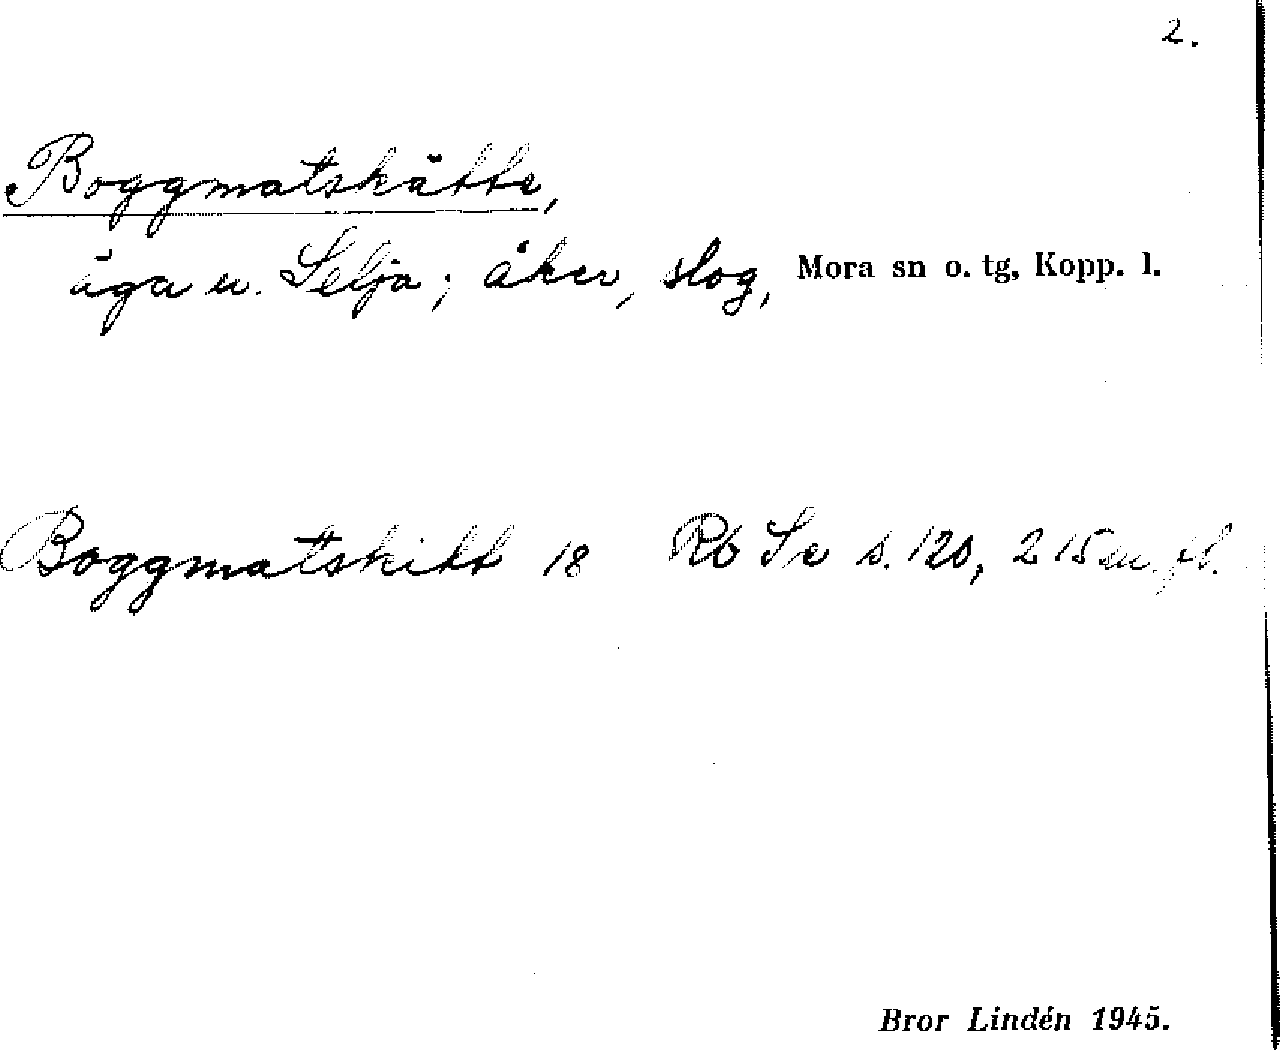 2.
Boggmatskätte,
äga u. Selja; åker, slog, Mora sn o. tg, Kopp. l.
Boggmatskitt 18 Rb Se s. 120, 215 m. fl.
Bror Lindén 1945.